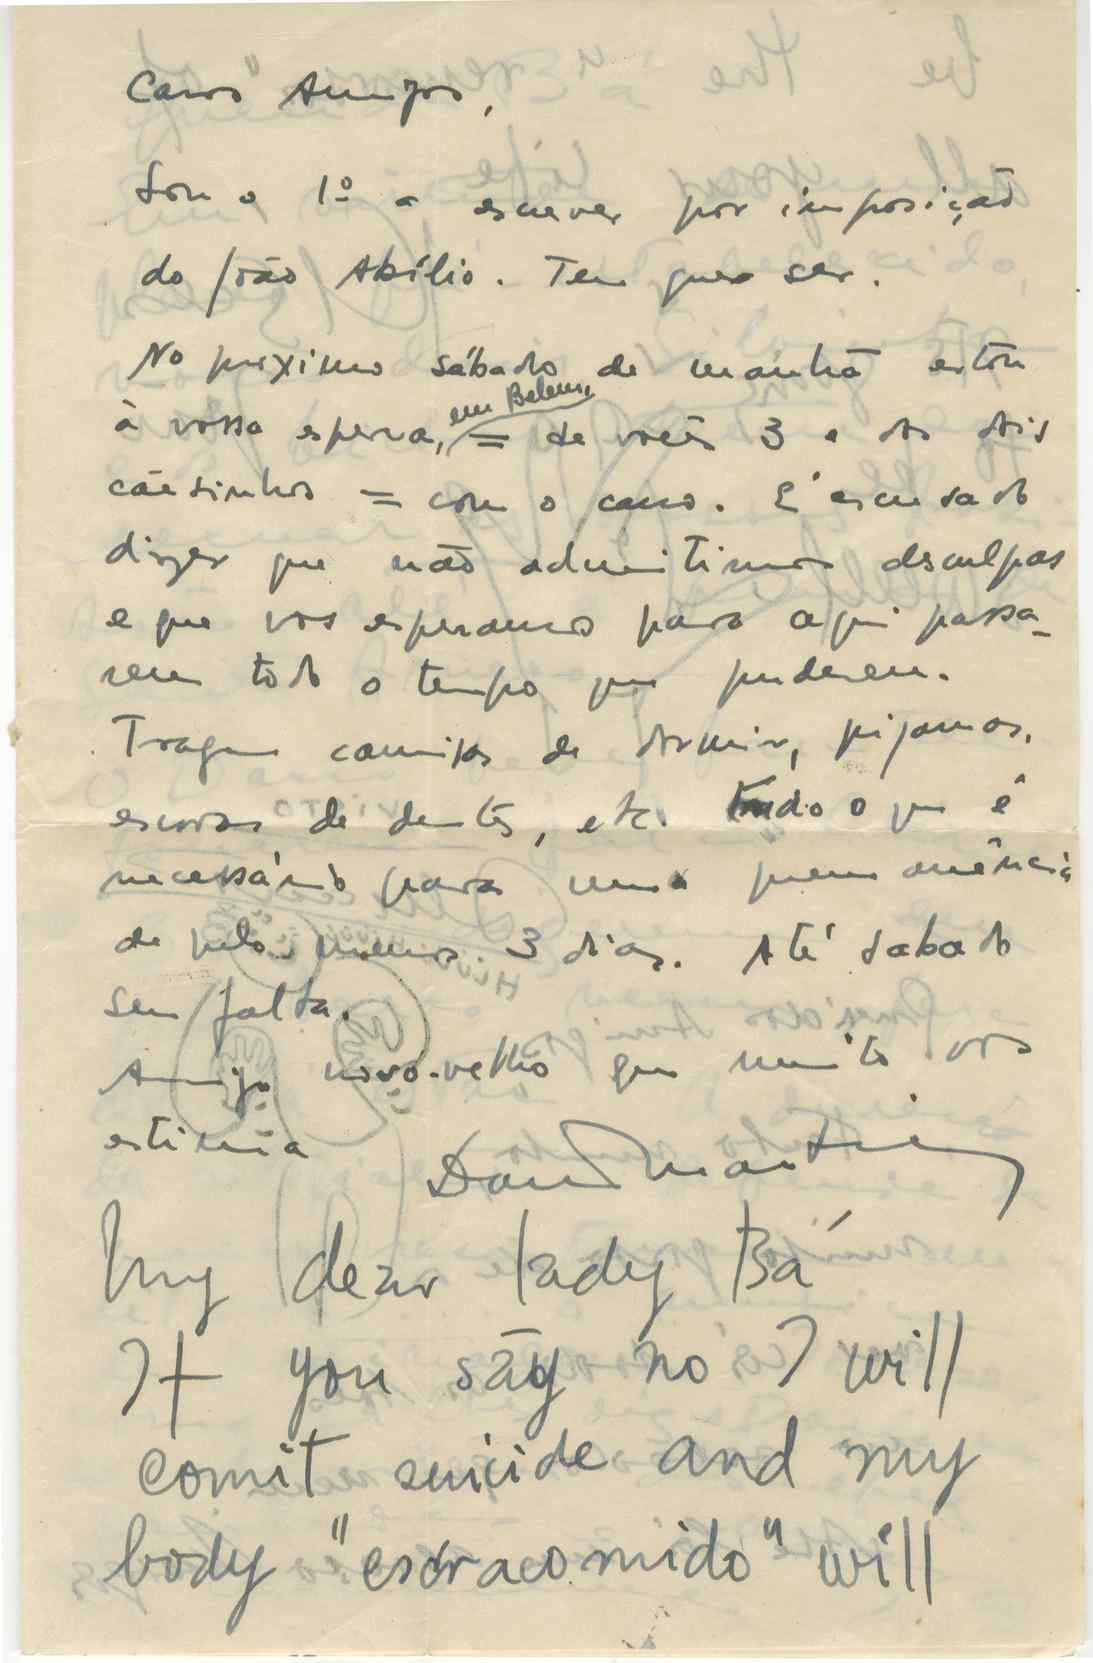 Caros Amigos,
Sou o 1º a escrever por imposição
do João Abílio. Tem que ser.
No próximo sábado de manhã estou
à vossa espera, em Belem, = de vocês 3 e dos dois
cãesinhos = com o carro. É escusado
dizer que não admitimos desculpas
e que vos esperamos para aqui passa-
rem todo o tempo que puderem.
Tragam camisas de dormir, pijamas,
escovas de dentes, etc. tudo o que é
necessário para uma permanência
de pelo menos 3 dias. Até sabado
sem falta.
Amigo novo-velho que muito vos
estima
My dear lady Bá
If you say no I will
comit suicide and my
body "escracomido" will